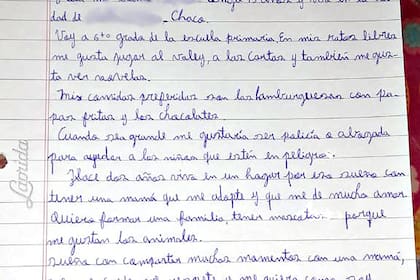 dad de Chaco.
Voy a 6to grado de la escuela primaria. En mis ratos libres
me gusta jugar al voley, a las cartas y también me gus-
ta ver novelas.
Mis comidas preferidas son las hamburguesas con pa-
pas fritas y los chocolates.
Cuando sea grande me gustaría ser policía o abogada
para ayudar a los niños que estén en peligro.
Hace dos años vivo en un hogar por eso sueño con
tener una mamá que me adopte y que me de mucho amor.
Quiero formar una familia, tener mascotas porque
me gustan los animales.
sueño con compartir muchos momentos con una mamá,
Laprida